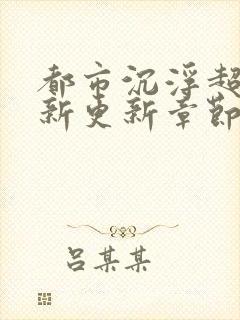 都市沉浮超
新更新章節
吕某某